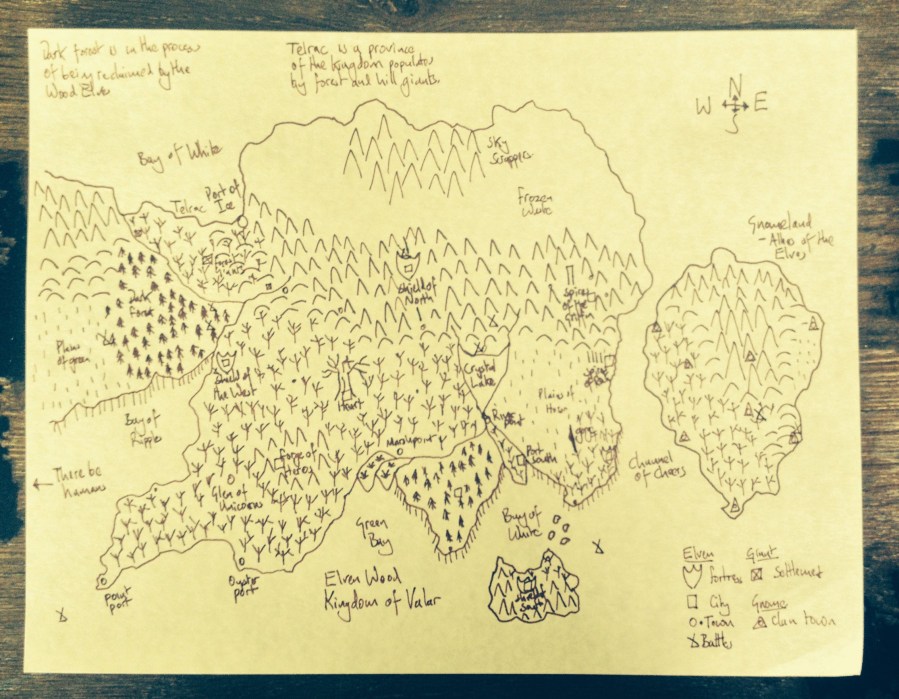 Dark forest is in the process
of being reclaimed by the
Wood Elves
Telrac is a province
of the Kingdom populated
by forest and hill giants
N
W E
S
Bay of White
Sky
Scrappers
Port of
Ice
Telrac
Frozen
White
Gnomeland
- Allies of the
Elves
Forest
Giants
Shield of
North
Spires
of the
Dark
Forest
Plains
of green
Shield of
the West
Heart
Crystal
Lake
Plains of
River
Port
South
Bay of
Ripples
Forge of
Heroes
Channel
of Cheers
There be
humans
Glen of
Unicorns
Green
Bay
Bay of
White
Point
port
Oyster
port
Elven Wood
Kingdom of Valar
Shield of
South
Elven
Giant
Fortress
Settlement
City
Gnome
Town
Clan town
Battle